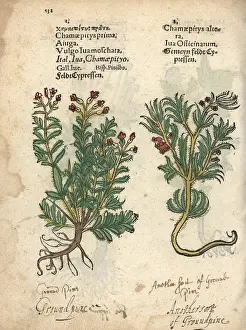 252
1;
Chamæpitys prima,
Aiuga.
Vulgo Iua moschata,
Ital. Iua, Chamæpityo.
Gall. Iue. Hisp. Pinillo.
Feldt Cypressen.
2;
Chamæpitys alte-
ra,
Iua Officinarum,
Gemein feldt Cy-
pressen.
Ground Pine
Ground pine
Another sort of Ground
Pine
Another sort
of Ground pine